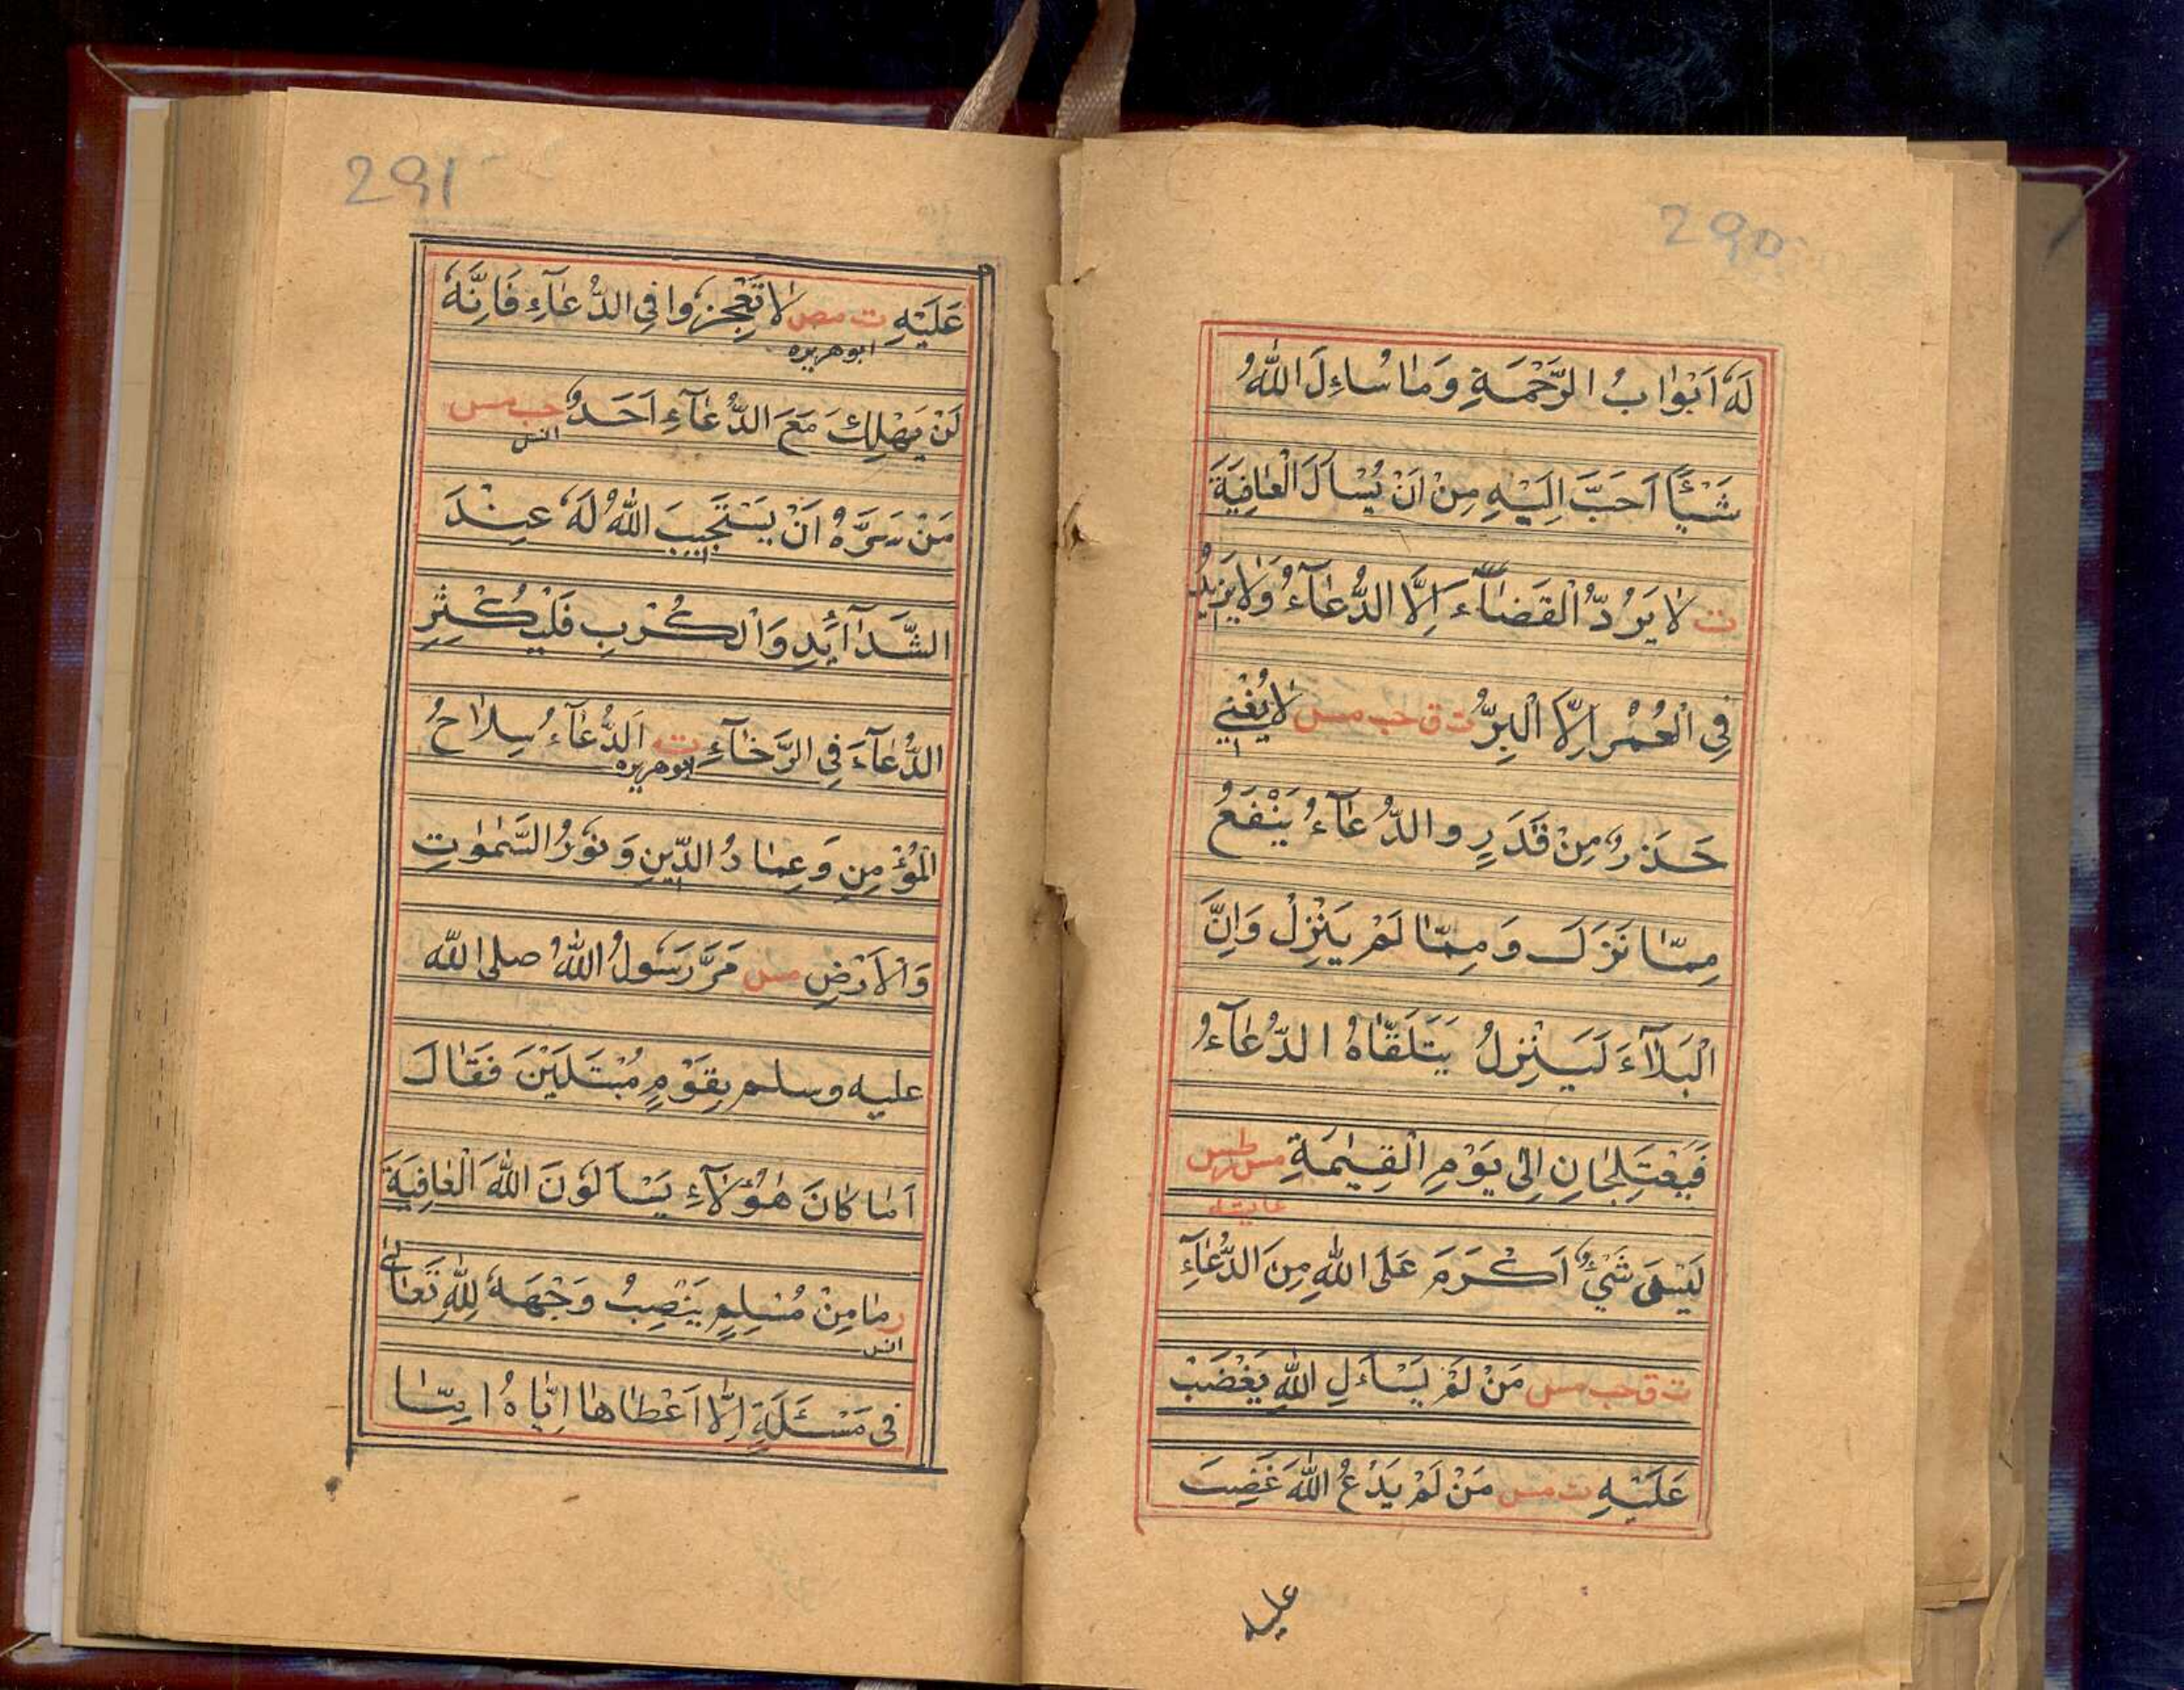 290
لَهٗ اَبْوَابُ الرَّحْمَةِ وَمَا سُاءِلَ اللّٰهُ
شَيْئًا اَحَبَّ اِلَيْهِ مِنْ اَنْ يُسْاَلَ الْعَافِيَةَ
ت لَا يَرُدُّ الْقَضَآءَ اِلَّا الدُّعَآءُ وَلَا يَزِيْدُ
فِى الْعُمْرِ اِلَّا الْبِرُّ ت ق حب مس لَا يُغْنِي
حَذَرٌ مِنْ قَدَرٍ والدُّعَآءُ يَنْفَعُ
مِمَّا نَزَلَ وَمِمَّا لَمْ يَنْزِلْ وَاِنَّ
الْبَلَآءَ لَيَنْزِلُ يَتَلَقَّاهُ الدُّعَآءُ
فَيَعْتَلِجَانِ اِلٰى يَوْمِ الْقِيٰمَةِ مس ر طس
عايشه
لَيْسَ شَيْءٌ اَكْرَمَ عَلَى اللّٰهِ مِنَ الدُّعَآءِ
ت ق حب مس مَنْ لَمْ يَسْاَءلِ اللّٰهِ يَغْضَبْ
عَلَيْهِ ت مس مَنْ لَمْ يَدْعُ اللّٰهَ غَضِبَ
عليه
291
عَلَيْهِ ت مص لَا تَعْجِزُوا فِى الدُّعَآءِ فَاِنَّهٗ
ابوهريره
لَنْ يَهْلِكَ مَعَ الدُّعَآءِ اَحَدٌ حب مس
انس
مَنْ سَرَّهٗ اَنْ يَسْتَجِيْبَ اللّٰهُ لَهٗ عِنْدَ
الشَّدَآئِدِ وَالْكُرَبِ فَلْيُكْثِرِ
الدُّعَآءَ فِى الرَّخَآءِ ت اَلدُّعَآءُ سِلَاحُ
ابوهريره
الْمُؤْمِنِ وَعِمَادُ الدِّيْنِ وَنُوْرُ السَّمٰوٰتِ
وَالْاَرْضِ مس مَرَّ رَسُوْلُ اللّٰهُ صلى الله
عليه وسلم بِقَوْمٍ مُبْتَلَيْنَ فَقَالَ
اَمَا كَانَ هٰؤُلَآءِ يَسْاَلُوْنَ اللّٰهَ الْعَافِيَةَ
ر مَا مِنْ مُسْلِمٍ يَنْصِبُ وَجْهَهٗ لِلّٰهِ تَعَالٰى
انس
فِى مَسْئَلَةٍ اِلَّا اَعْطَاهَا اِيَّاهُ اِمَّا